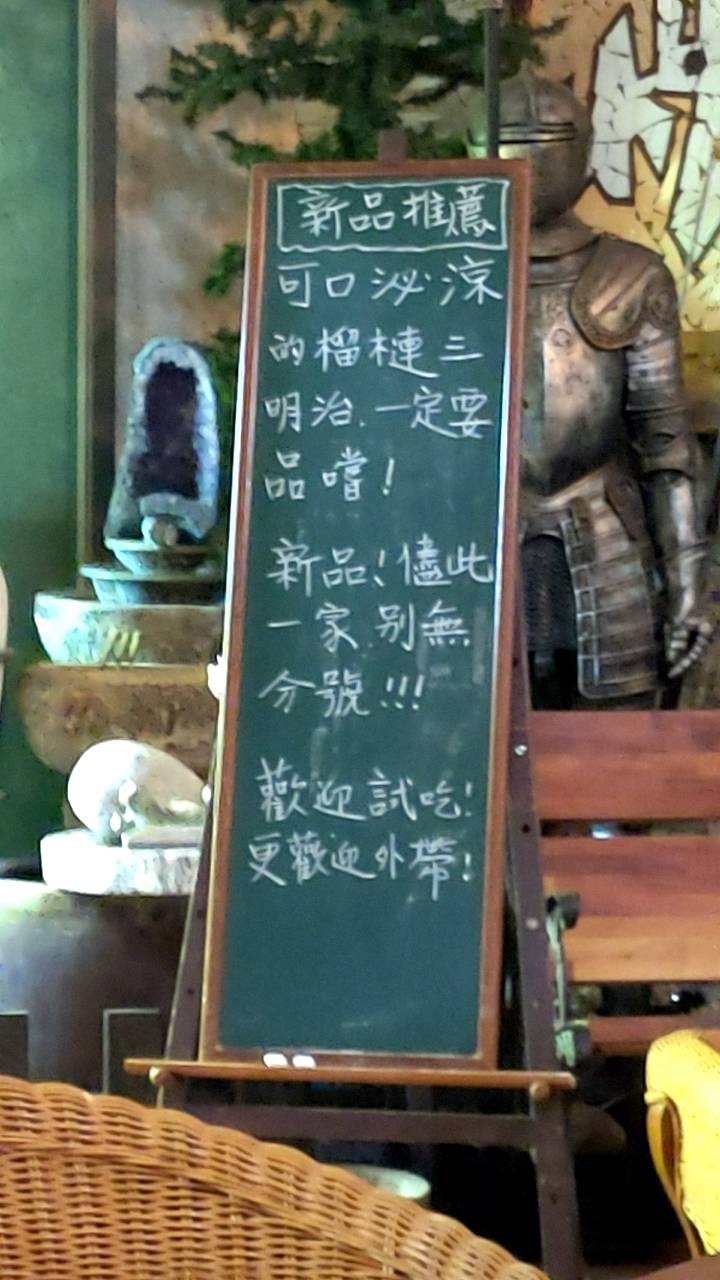 新品推薦
可口泌涼
的榴槤三
明治.一定要
品嚐!
新品!儘此
一家.別無
分號!!!
歡迎試吃!
更歡迎外帶!